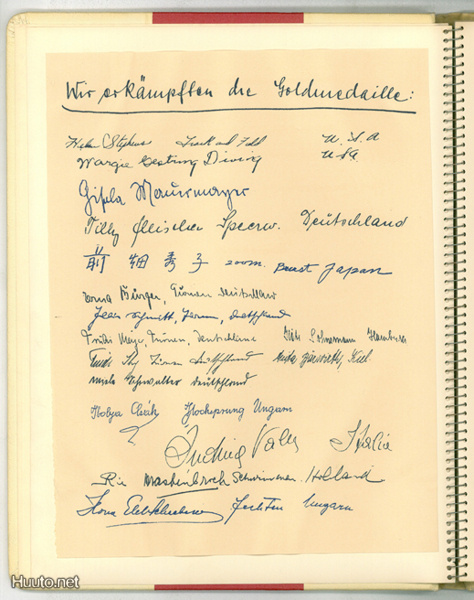 Wir erkämpften die Goldmedaille:
Helen Stephens Track and Field U. S. A
Margie Gestring Diving USA
Gisela Mauermayer
Tilly Fleischer Speerw. Deutschland
前 畑 秀 子 200m. Brust Japan
Erna Bürger, Turnen Deutschland
Deutschland
Trudi Meyer, Turnen, Deutschland Käthe Sohnemann Hamburg
Turnen Deutschland Anita Bärwirth, Kiel
Deutschland
Ibolya Csák Hochsprung Ungarn
Valla Italia
Rie Mastenbroek Schwimmen. Holland
Ilona Fechten Ungarn
Huuto.net